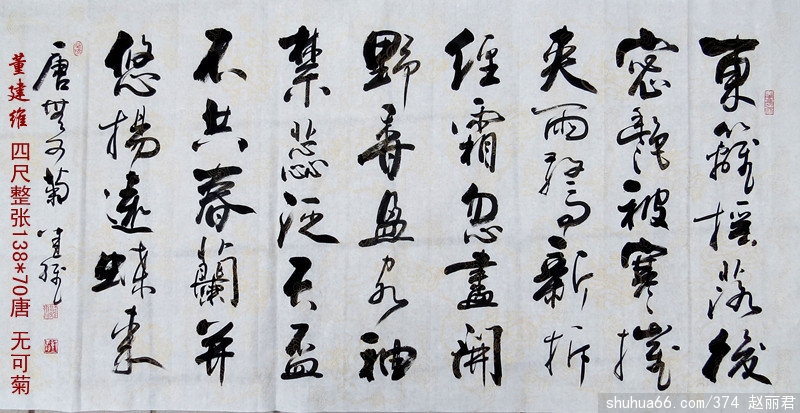 東籬摇落後
密艷被寒摧
夾雨驚新拆
經霜忽盡開
野香盈客袖
禁蕊泛天盃
不共春蘭并
悠揚遠蝶來
唐無可菊 建維
董建维 四尺整张138*70唐 无可菊
shuhua66.com/374 赵丽君